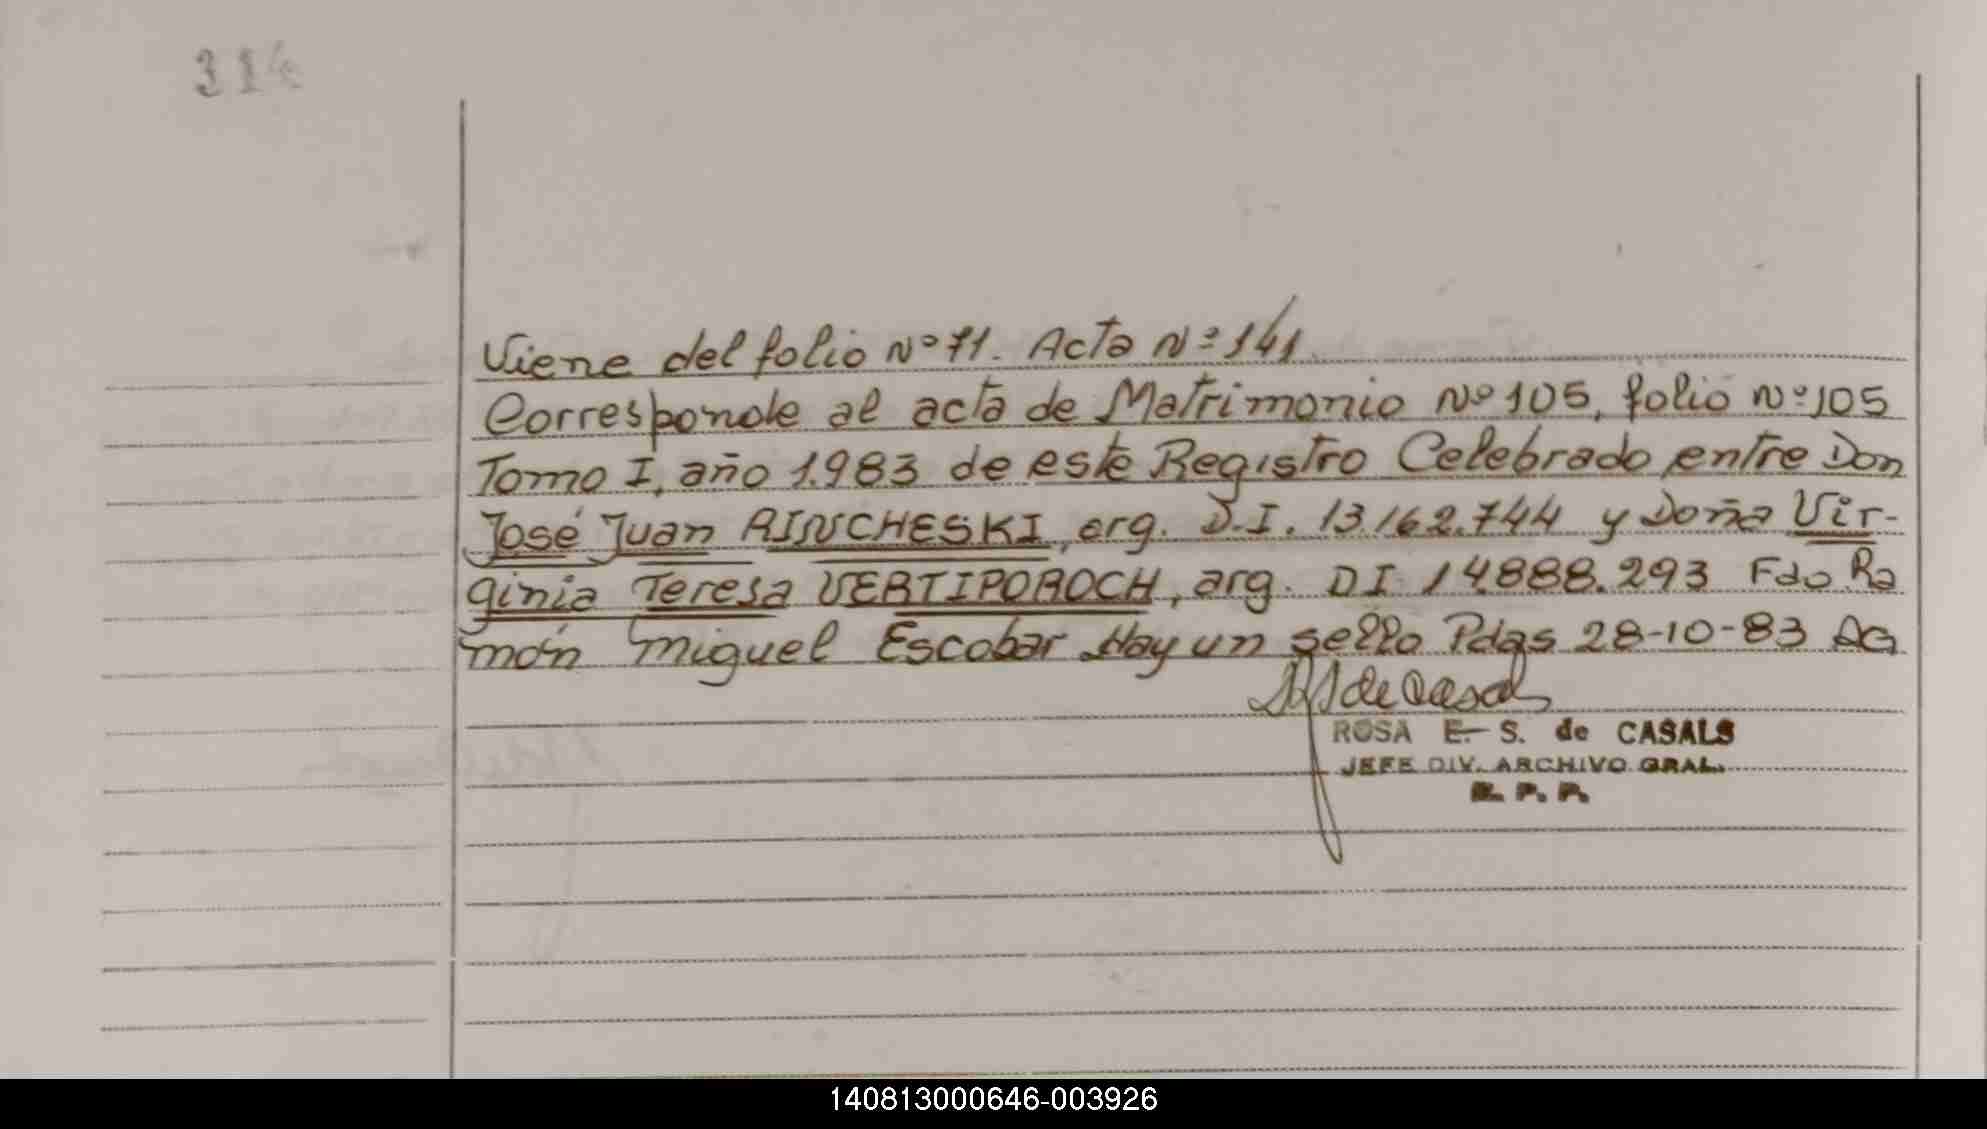 314
Viene del folio Nº 71. Acta Nº 141
Corresponde al acta de Matrimonio Nº 105, folio Nº 105
Tomo I, año 1.983 de este Registro Celebrado entre Don
José Juan RINCHESKI, arg. D.I. 13.162.744 y Doña Vir-
ginia Teresa VERTIPOROCH, arg. DI 14888.293 Fdo Ra
món Miguel Escobar Hay un sello Pdas 28-10-83 AG
de Casals
ROSA E. S. de CASALS
JEFE DIV. ARCHIVO GRAL.
R. P. P.
140813000646-003926